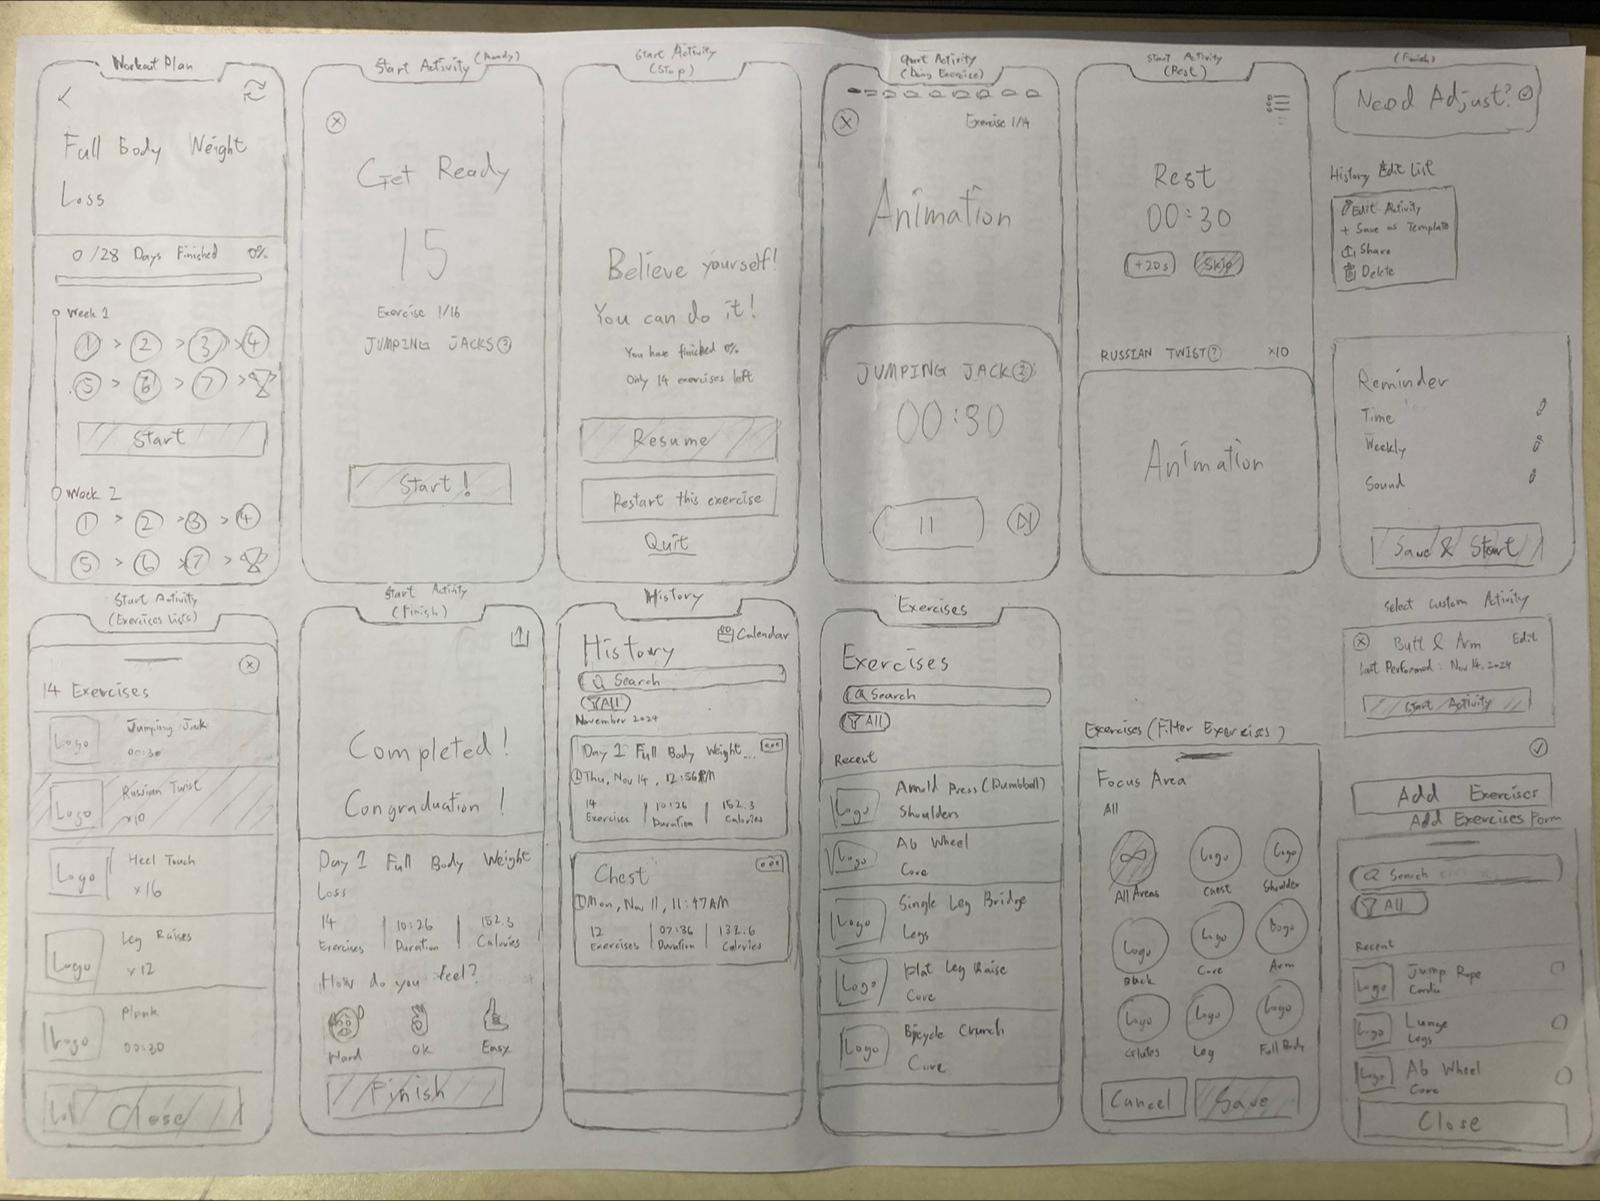 Workout Plan
Full Body Weight
Loss
0/28 Days Finished 0%
Week 1
1 > 2 > 3 > 4
5 > 6 > 7 >
Start
Week 2
1 > 2 > 3 > 4
5 > 6 > 7 >
Start Activity (Ready)
Get Ready
15
Exercise 1/16
JUMPING JACKS ?
Start!
Start Activity
(Stop)
Believe yourself!
You can do it!
You have finished 0%
Only 14 exercises left
Resume
Restart this exercise
Quit
Start Activity
(Doing Exercise)
Exercise 1/14
Animation
JUMPING JACK ?
00:30
Start Activity
(Rest)
Rest
00:30
+20s Skip
RUSSIAN TWIST ? x10
Animation
(Finish)
Need Adjust?
History Edit List
Edit Activity
+ Save as Template
Share
Delete
Reminder
Time
Weekly
Sound
Save & Start
Start Activity
(Exercises Lists)
14 Exercises
Logo
Jumping Jack
00:30
Logo
Russian Twist
x10
Logo
Heel Touch
x16
Logo
Leg Raises
x12
Logo
Plank
00:30
Close
Start Activity
(Finish)
Completed!
Congraduation!
Day 1 Full Body Weight
Loss
14 | 10:26 | 152.3
Exercises Duration Calories
How do you feel?
Hard OK Easy
Finish
History
Calendar
History
Search
All
November 2024
Day 1 Full Body Weight...
Thu, Nov 14, 12:56PM
14 | 10:26 | 152.3
Exercises Duration Calories
Chest
Mon, Nov 11, 11:47AM
12 | 07:36 | 132.6
Exercises Duration Calories
Exercises
Exercises
Search
All
Recent
Logo
Arnold Press (Dumbball)
Shoulders
Logo
Ab Wheel
Core
Logo
Single Leg Bridge
Legs
Logo
Flat Leg Raise
Core
Logo
Bicycle Crunch
Core
Exercises (Filter Exercises)
Focus Area
All
Logo Logo
All Areas Chest Shoulder
Logo Logo Logo
Back Core Arm
Logo Logo Logo
Glutes Leg Full Body
Cancel Save
Select Custom Activity
Butt & Arm Edit
Last Performed: Nov 14, 2024
Start Activity
Add Exercises
Add Exercises Form
Search
All
Recent
Logo
Jump Rope
Cardio
Logo
Lunge
Legs
Logo
Ab Wheel
Core
Close